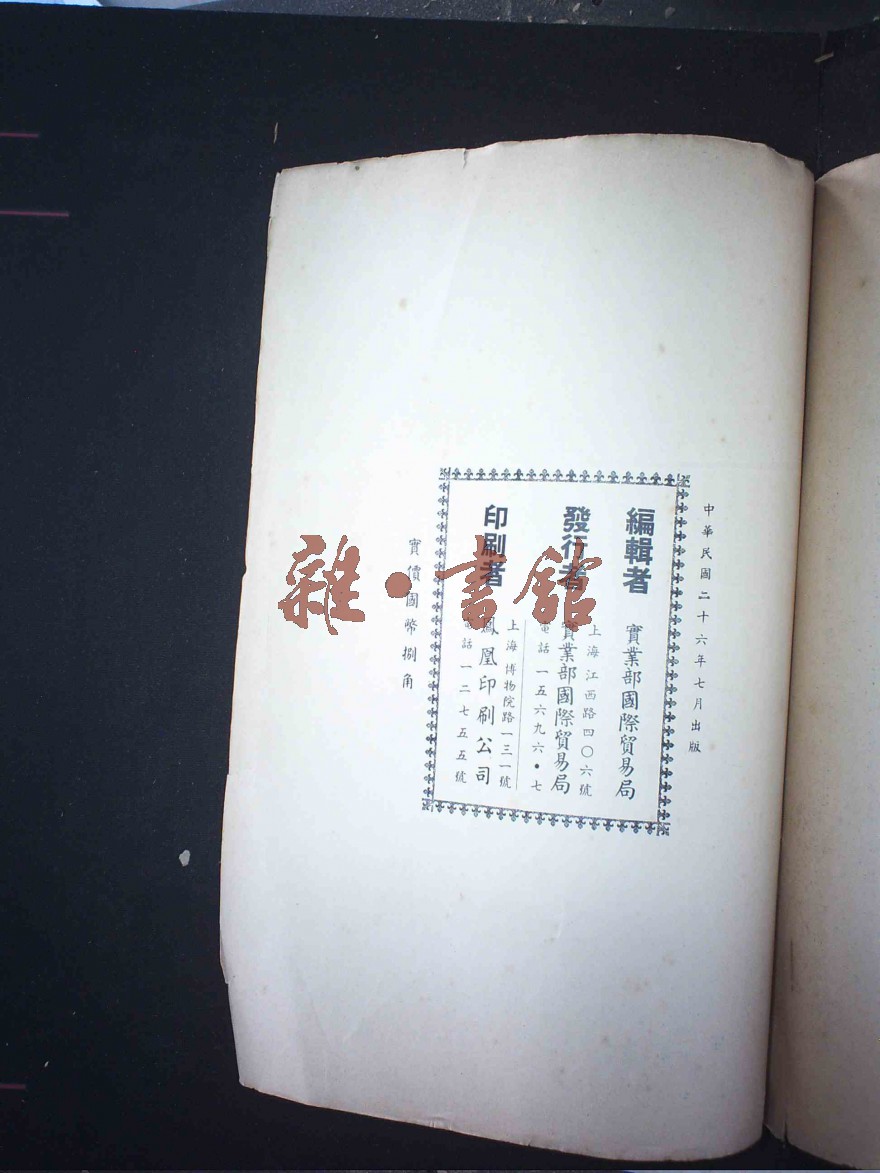 中華民國二十六年七月出版
編輯者 實業部國際貿易局
上海江西路四〇六號
發行者 實業部國際貿易局
電話一五六九六・七
上海博物院路一三一號
印刷者 鳳凰印刷公司
電話一二七五五號
實價國幣捌角
雜・書館